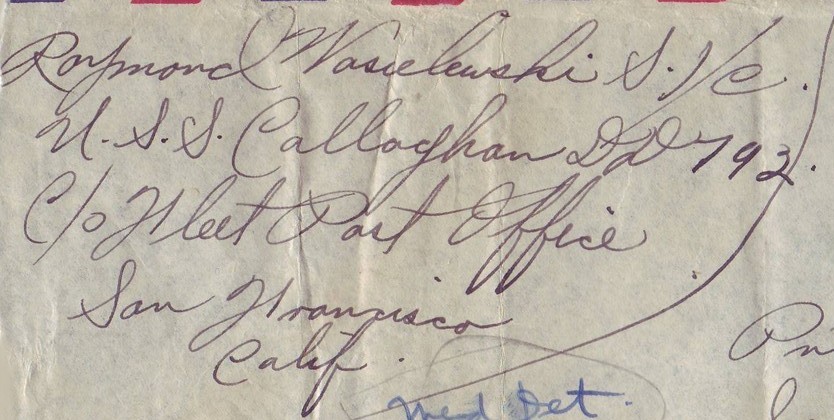 Raymond Wasielewski S.1/c.
U.S.S. Callaghan DD 792.
C/o Fleet Post Office
San Francisco
Calif.
Med Det.